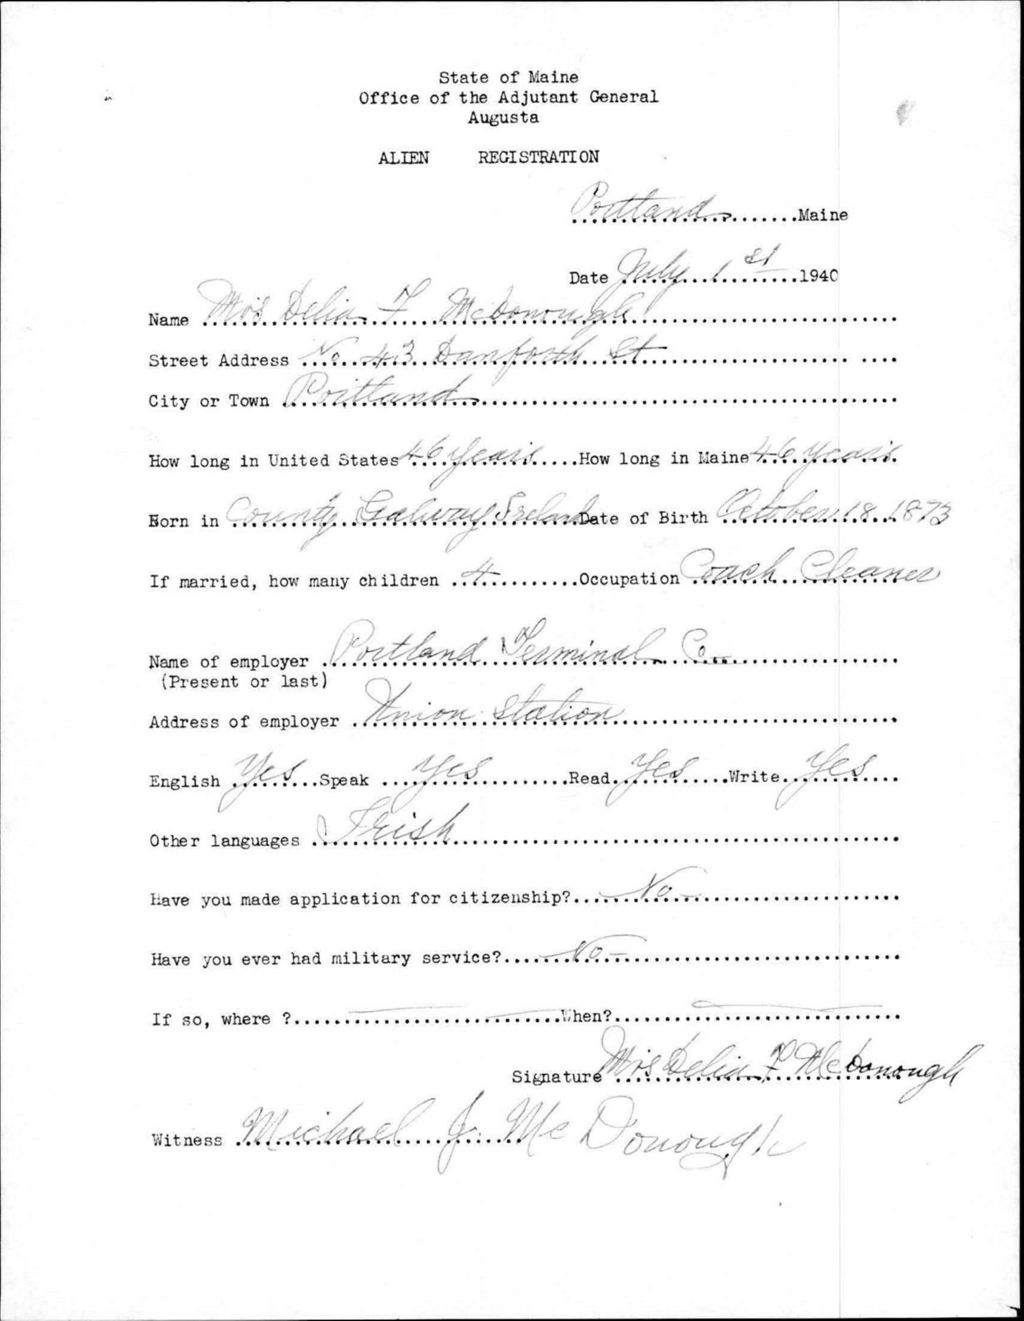 State of Maine
Office of the Adjutant General
Augusta
ALIEN REGISTRATION
Portland Maine
Date July 1st 1940
Name Mrs Delia F McDonough
Street Address No. 43 Danforth St
City or Town Portland
How long in United States 46 years How long in Maine 46 years
Born in County Galway Ireland Date of Birth October 18. 1873
If married, how many children 4 Occupation Coach Cleaner
Name of employer Portland Terminal Co
(Present or last)
Address of employer Union Station
English Yes Speak Yes Read Yes Write Yes
Other languages Irish
Have you made application for citizenship? No
Have you ever had military service? No
If so, where ? When?
Signature Mrs Delia F McDonough
Witness Michael J. McDonough